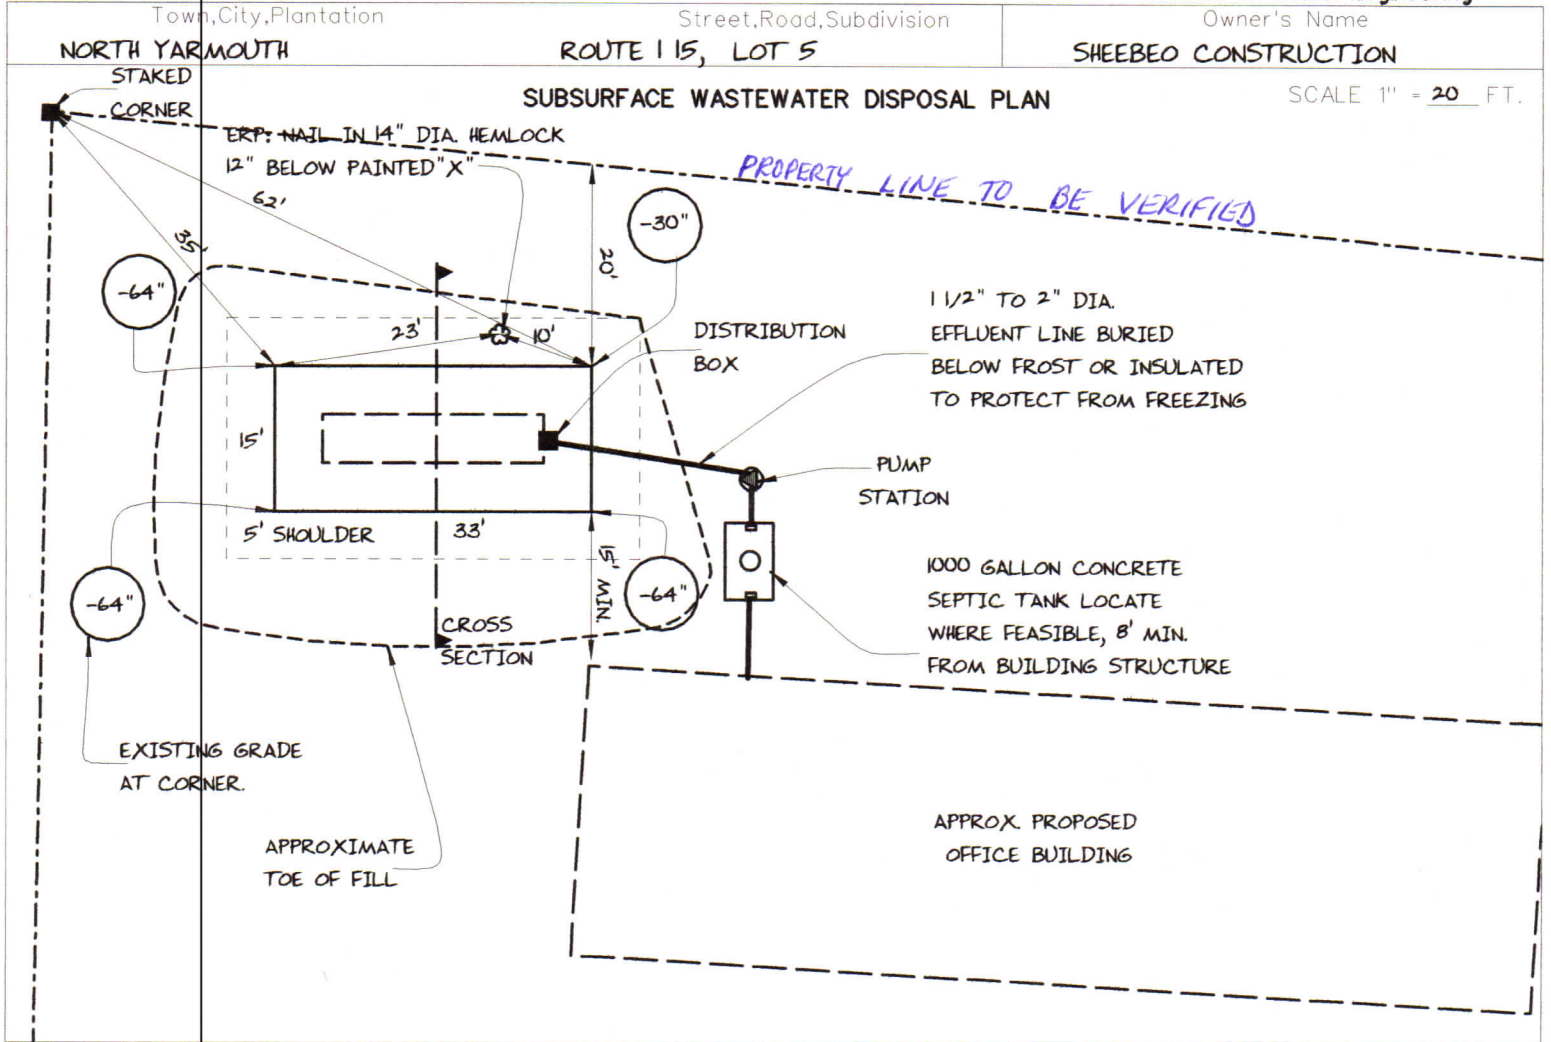 Town,City,Plantation
Street,Road,Subdivision
Owner's Name
NORTH YARMOUTH
ROUTE 115, LOT 5
SHEEBEO CONSTRUCTION
STAKED
CORNER
SUBSURFACE WASTEWATER DISPOSAL PLAN
SCALE 1" = 20 FT.
ERP: NAIL IN 14" DIA. HEMLOCK
12" BELOW PAINTED "X"
PROPERTY LINE TO BE VERIFIED
62'
35'
-30"
20'
-64"
23'
10'
DISTRIBUTION
BOX
1 1/2" TO 2" DIA.
EFFLUENT LINE BURIED
BELOW FROST OR INSULATED
TO PROTECT FROM FREEZING
15'
PUMP
STATION
5' SHOULDER
33'
15' MIN.
-64"
-64"
1000 GALLON CONCRETE
SEPTIC TANK LOCATE
WHERE FEASIBLE, 8' MIN.
FROM BUILDING STRUCTURE
CROSS
SECTION
EXISTING GRADE
AT CORNER.
APPROXIMATE
TOE OF FILL
APPROX. PROPOSED
OFFICE BUILDING